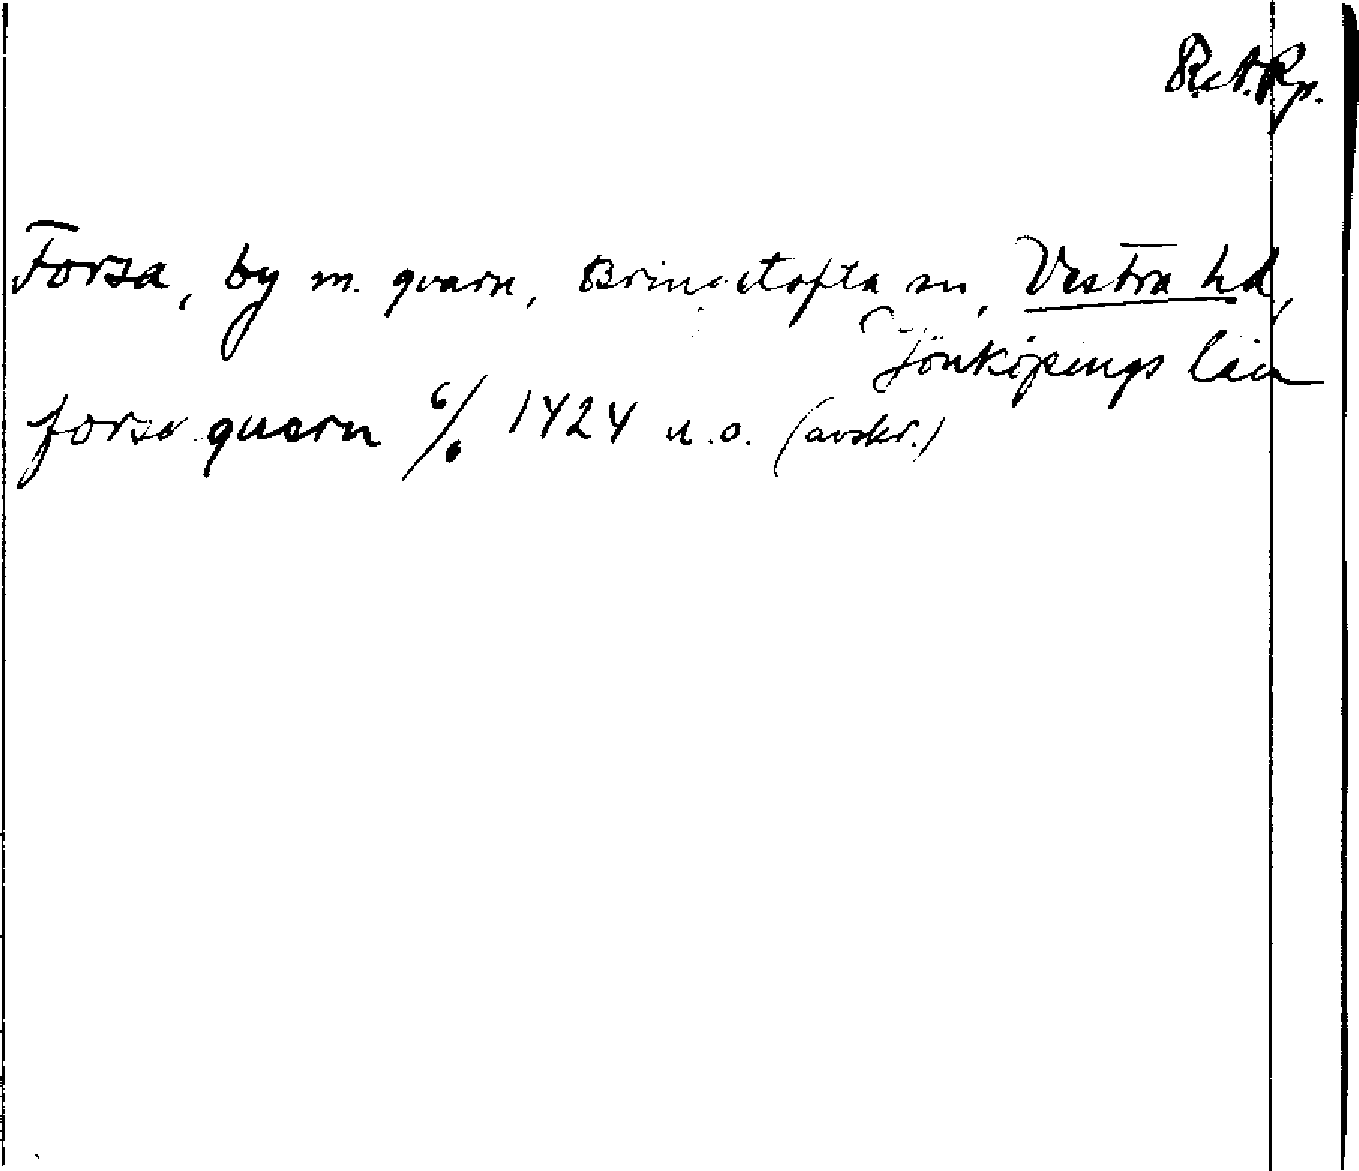 R.A.Rp.
Forsa, by m. qvarn, Bringetofta sn, Vestra hd,
Jönköpings län
forsa quarn 6/6 1424 n.o. (avskr.)